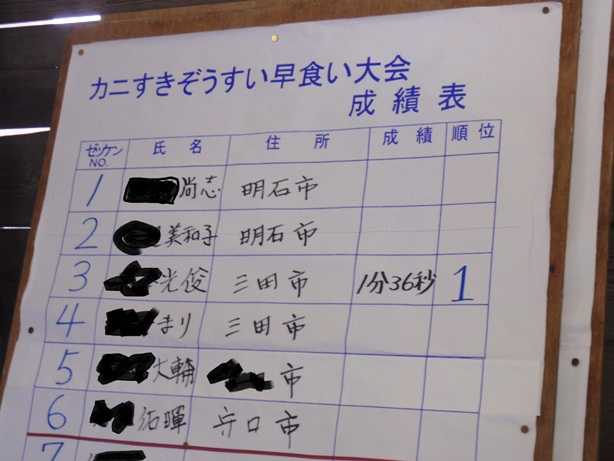 カニすきぞうすい早食い大会
成績表
ゼッケンNO. 氏名 住所 成績 順位
1 尚志 明石市
2 美和子 明石市
3 光俊 三田市 1分36秒 1
4 まり 三田市
5 大輔 市
6 拓暉 守口市
7